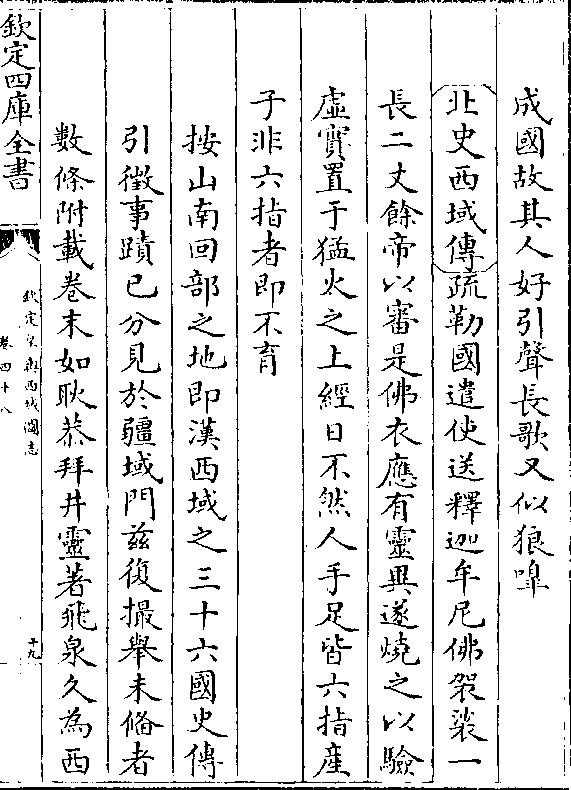 成國故其人好引聲長歌又似狼嘷
北史西域傳疏勒國遣使送釋迦牟尼佛袈裟一
長二丈餘帝以審是佛衣應有靈異遂燒之以驗
虛實置于猛火之上經日不然人手足皆六指産
子非六指者即不育
按山南回部之地即漢西域之三十六國史傳
引徴事蹟已分見於疆域門兹復撮舉未備者
數條附載卷末如耿恭拜井靈著飛泉久為西
欽定四庫全書
欽定皇輿西域圖志
卷四十八
十九